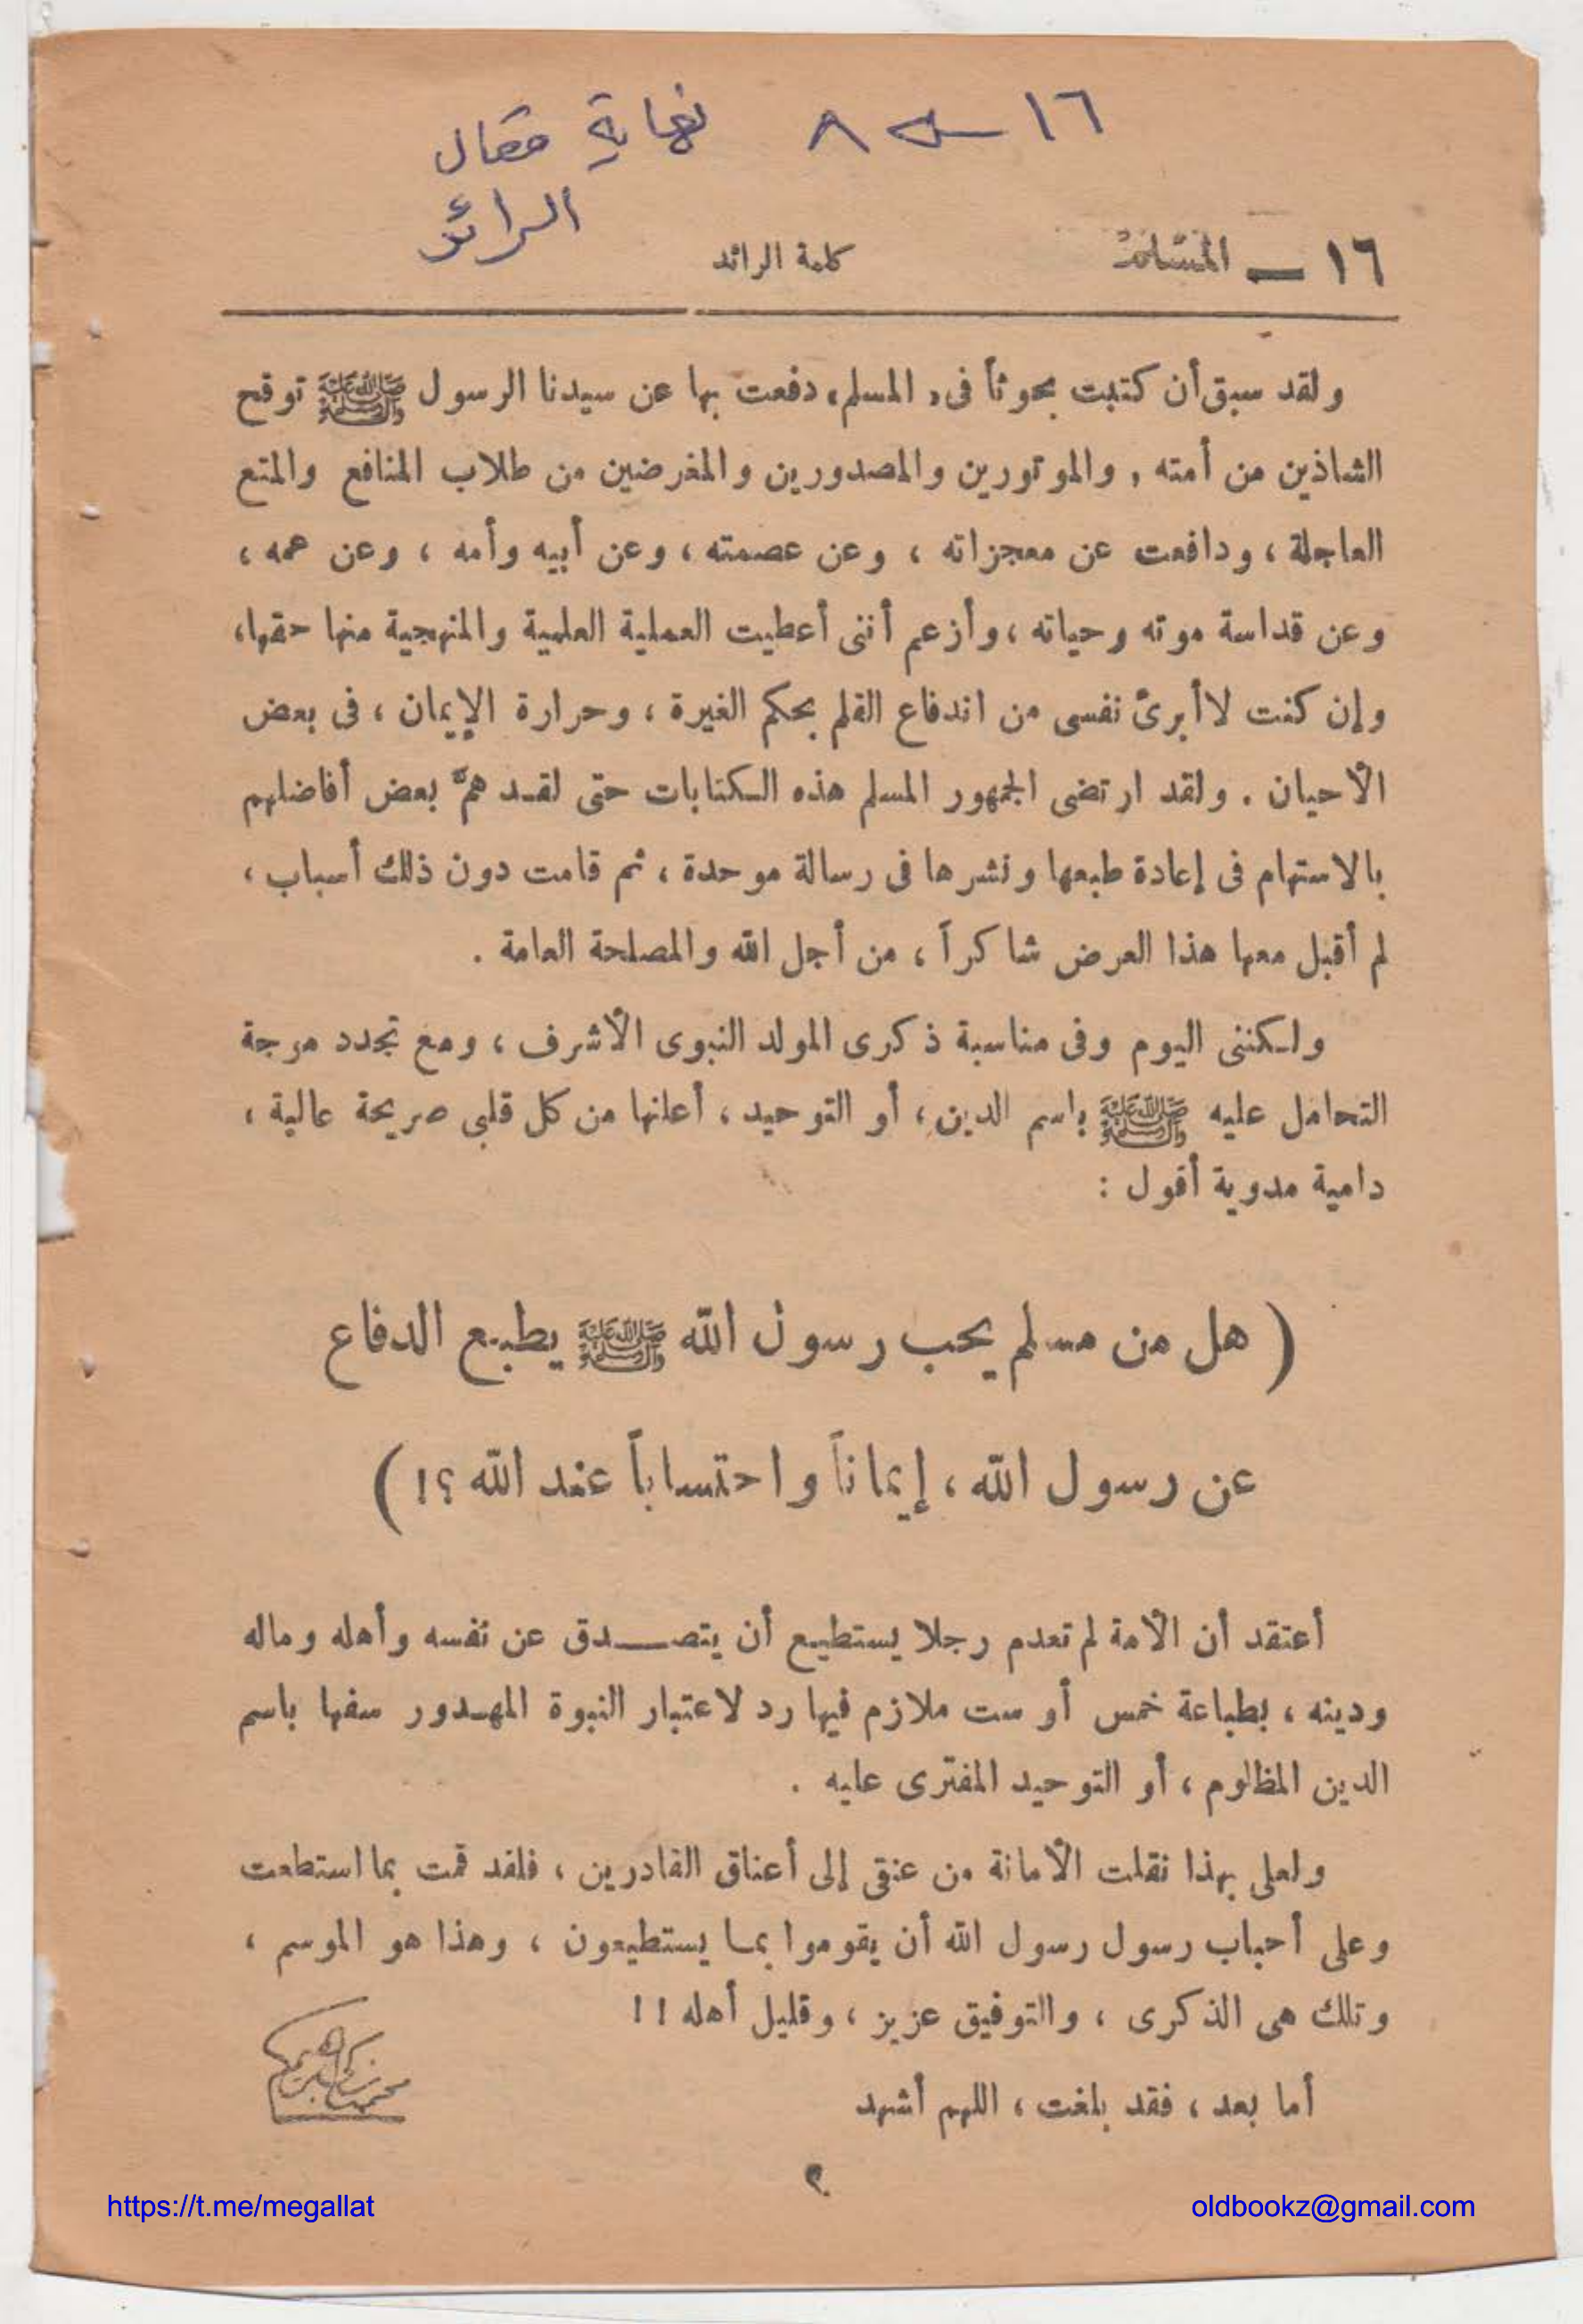 ١٦ ــ ٨ نهاية مقال
الرائد
١٦ ــ المسلم كلمة الرائد
ولقد سبق أن كتبت بحوثاً فى « المسلم » دفعت بها عن سيدنا الرسول ﷺ توقح
الشاذين من أمته , والموتورين والمصدورين والمغرضين من طلاب المنافع والمتع
العاجلة ، ودافعت عن معجزاته ، وعن عصمته ، وعن أبيه وأمه ، وعن عمه ،
وعن قداسة موته وحياته ، وأزعم أننى أعطيت العملية العلمية والمنهجية منها حقها ،
وإن كنت لا أبرئ نفسى من اندفاع القلم بحكم الغيرة ، وحرارة الإيمان ، فى بعض
الأحيان . ولقد ارتضى الجمهور المسلم هذه الكتابات حتى لقد همَّ بعض أفاضلهم
بالاستهام فى إعادة طبعها ونشرها فى رسالة موحدة ، ثم قامت دون ذلك أسباب ،
لم أقبل معها هذا العرض شاكراً ، من أجل الله والمصلحة العامة .
ولكننى اليوم وفى مناسبة ذكرى المولد النبوى الأشرف ، ومع تجدد موجة
التحامل عليه ﷺ باسم الدين ، أو التوحيد ، أعلنها من كل قلبى صريحة عالية ،
دامية مدوية أقول :
( هل من مسلم يحب رسول الله ﷺ يطبع الدفاع
عن رسول الله ، إيماناً واحتساباً عند الله ؟! )
أعتقد أن الأمة لم تعدم رجلا يستطيع أن يتصــدق عن نفسه وأهله وماله
ودينه ، بطباعة خمس أو ست ملازم فيها رد لاعتبار النبوة المهدور سفها باسم
الدين المظلوم ، أو التوحيد المفترى عليه .
ولعلى بهذا نقلت الأمانة من عنقى إلى أعناق القادرين ، فلقد قمت بما استطعت
وعلى أحباب رسول رسول الله أن يقوموا بما يستطيعون ، وهذا هو الموسم ،
وتلك هى الذكرى ، والتوفيق عزيز ، وقليل أهله !!
أما بعد ، فقد بلغت ، اللهم أشهد
محمد زكى إبراهيم
https://t.me/megallat
oldbookz@gmail.com